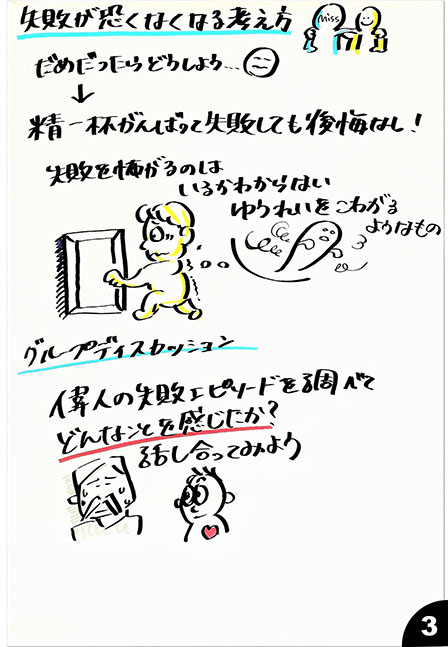 失敗が恐くなくなる考え方
miss
だめだったらどうしよう…
↓
精一杯がんばって失敗しても後悔なし!
失敗を怖がるのは
いるかわからない
ゆうれいをこわがる
ようなもの
グループディスカッション
偉人の失敗エピソードを調べて
どんなことを感じたか?
話し合ってみよう
3